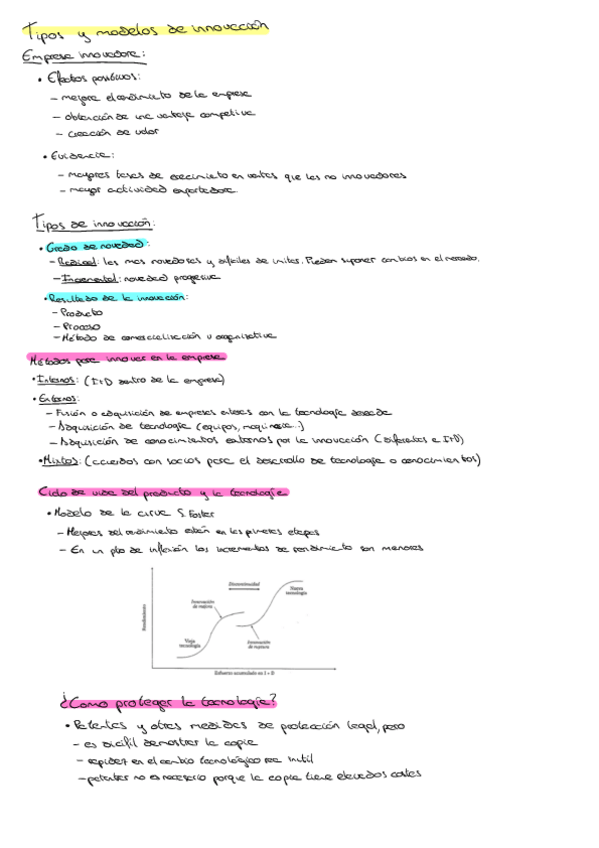 Tipos y modelos de innovación
Empresa innovadora:
• Efectos positivos:
– mejora el rendimiento de la empresa
– obtención de una ventaja competitiva
– creación de valor
• Evidencia:
– mayores tasas de crecimiento en ventas que las no innovadoras
– mayor actividad exportadora
Tipos de innovación:
• Grado de novedad:
– Radical: las mas novedosas y difíciles de imitar. Pueden suponer cambios en el mercado.
– Incremental: novedad progresiva
• Resultado de la innovación:
– Producto
– Proceso
– Método de comercialización u organizativa
Métodos para innovar en la empresa
• Internos: (I+D dentro de la empresa)
• Externos:
– Fusión o adquisición de empresas enteras con la tecnología deseada
– Adquisición de tecnología (equipos, maquinaria...)
– Adquisición de conocimientos externos por la innovación (diferentes a I+D)
• Mixtos: (acuerdos con socios para el desarrollo de tecnología o conocimientos)
Ciclo de vida del producto y la tecnología
• Modelo de la curva S. Foster
– Mejoras del rendimiento están en las primeras etapas
– En un pto de inflexión los incrementos de rendimiento son menores
Discontinuidad
Nueva
tecnología
Innovación
de mejora
Rendimiento
Vieja
tecnología
Innovación
de ruptura
Esfuerzo acumulado en I + D
¿Como proteger la tecnología?
• Patentes y otras medidas de protección legal, pero
– es dificil demostrar la copia
– rapidez en el cambio tecnológico sea inutil
– patentar no es necesario porque la copia tiene elevados costes